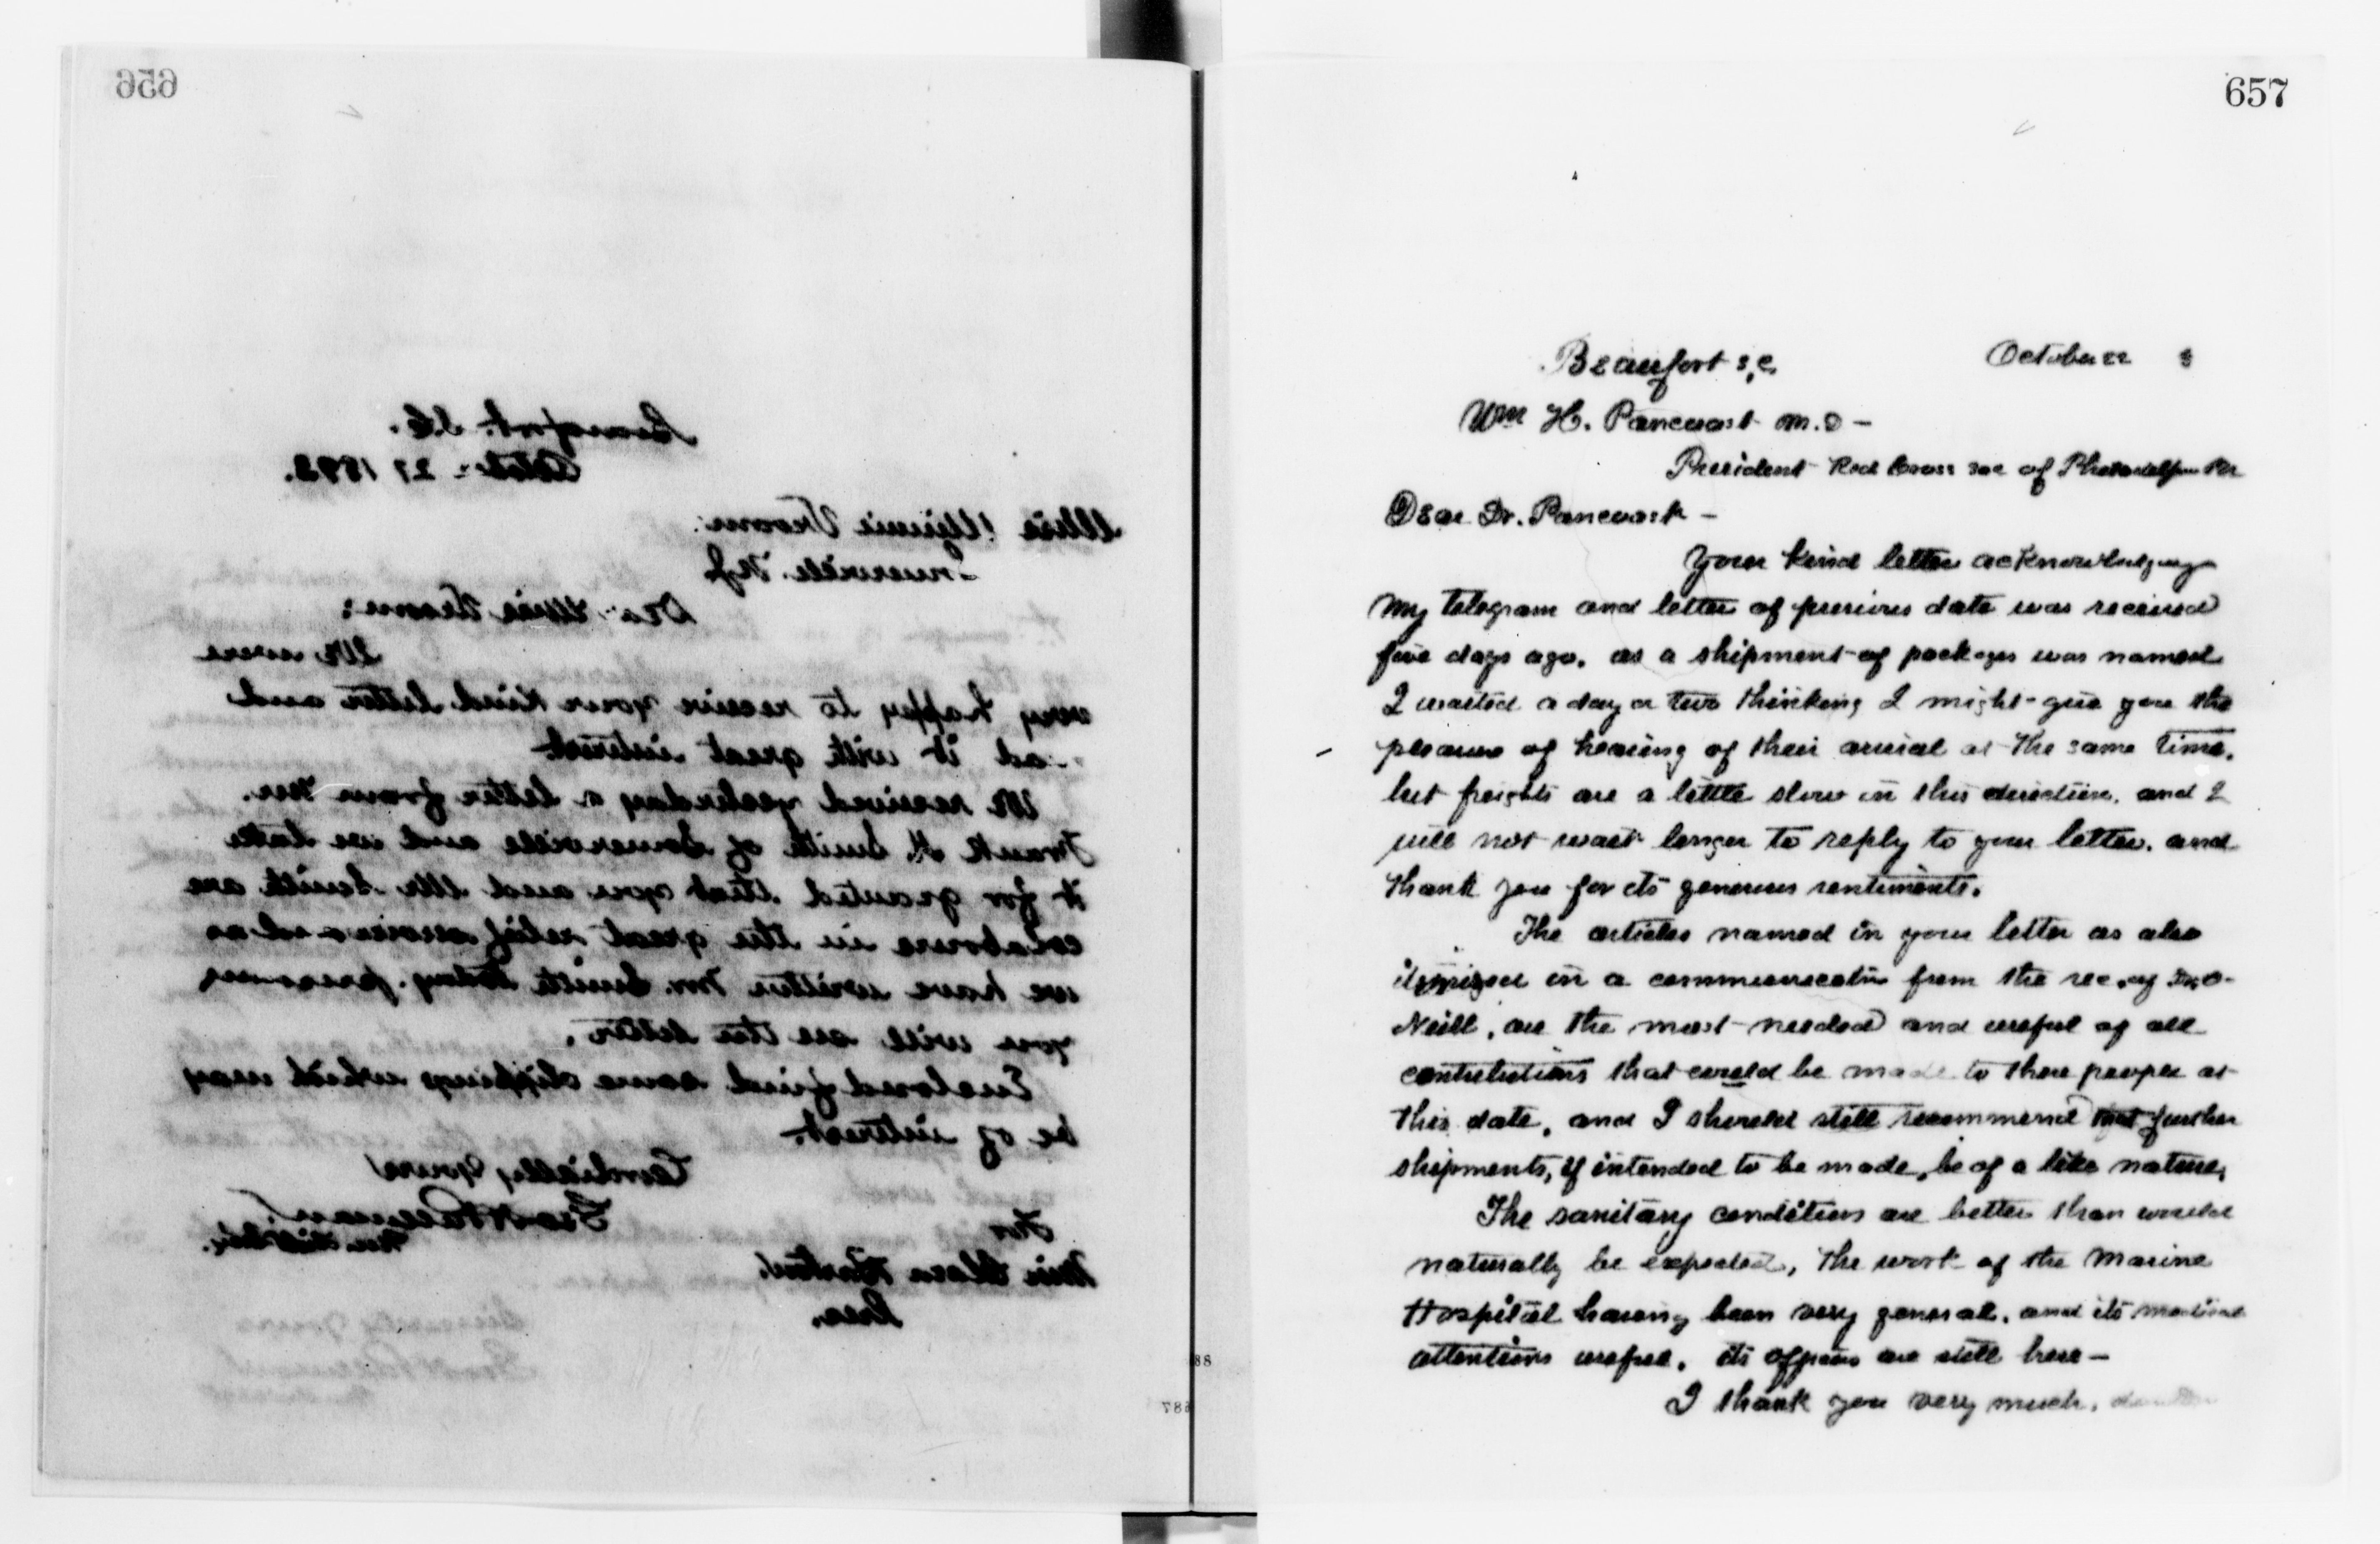 656
Beaufort. S.C.
October 27 1893.
Miss Minnie Vroom:
Somerville. N.J.
Dear Miss Vroom:
We were
very happy to receive your kind letter and
read it with great interest.
We received yesterday a letter from Mr.
Frank H. Smith of Somerville and we take
it for granted that you and Mr Smith are
colaborers in the great relief service and as
we have written Mr. Smith today. presume
you will see the letter.
Enclosed find some clippings which may
be of interest.
Cordially yours
Geo H Pullman.
For
Miss Clara Barton.
Pres.
657
Beaufort S.C. October 22 3
Wm H. Pancoast M.D –
President Red Cross Soc of Philadelphia Pa
Dear Dr. Pancoast –
Your kind letter acknowledging
my telegram and letter of previous date was received
five days ago. as a shipment of packages was named
I waited a day or two thinking I might give you the
pleasure of hearing of their arrival at the same time.
but freights are a little slow in this direction. and I
will not wait longer to reply to your letter. and
thank you for its generous sentiments.
The articles named in your letter as also
itemized in a communication from the sec. of
Neill, are the most needed and useful of all
contributions that could be made to these people at
this date, and I should still recommend that further
shipments, if intended to be made, be of a like nature,
The sanitary conditions are better than would
naturally be expected, the work of the Marine
Hospital having been very general. and its medical
attentions useful. its officers are still here –
I thank you very much,